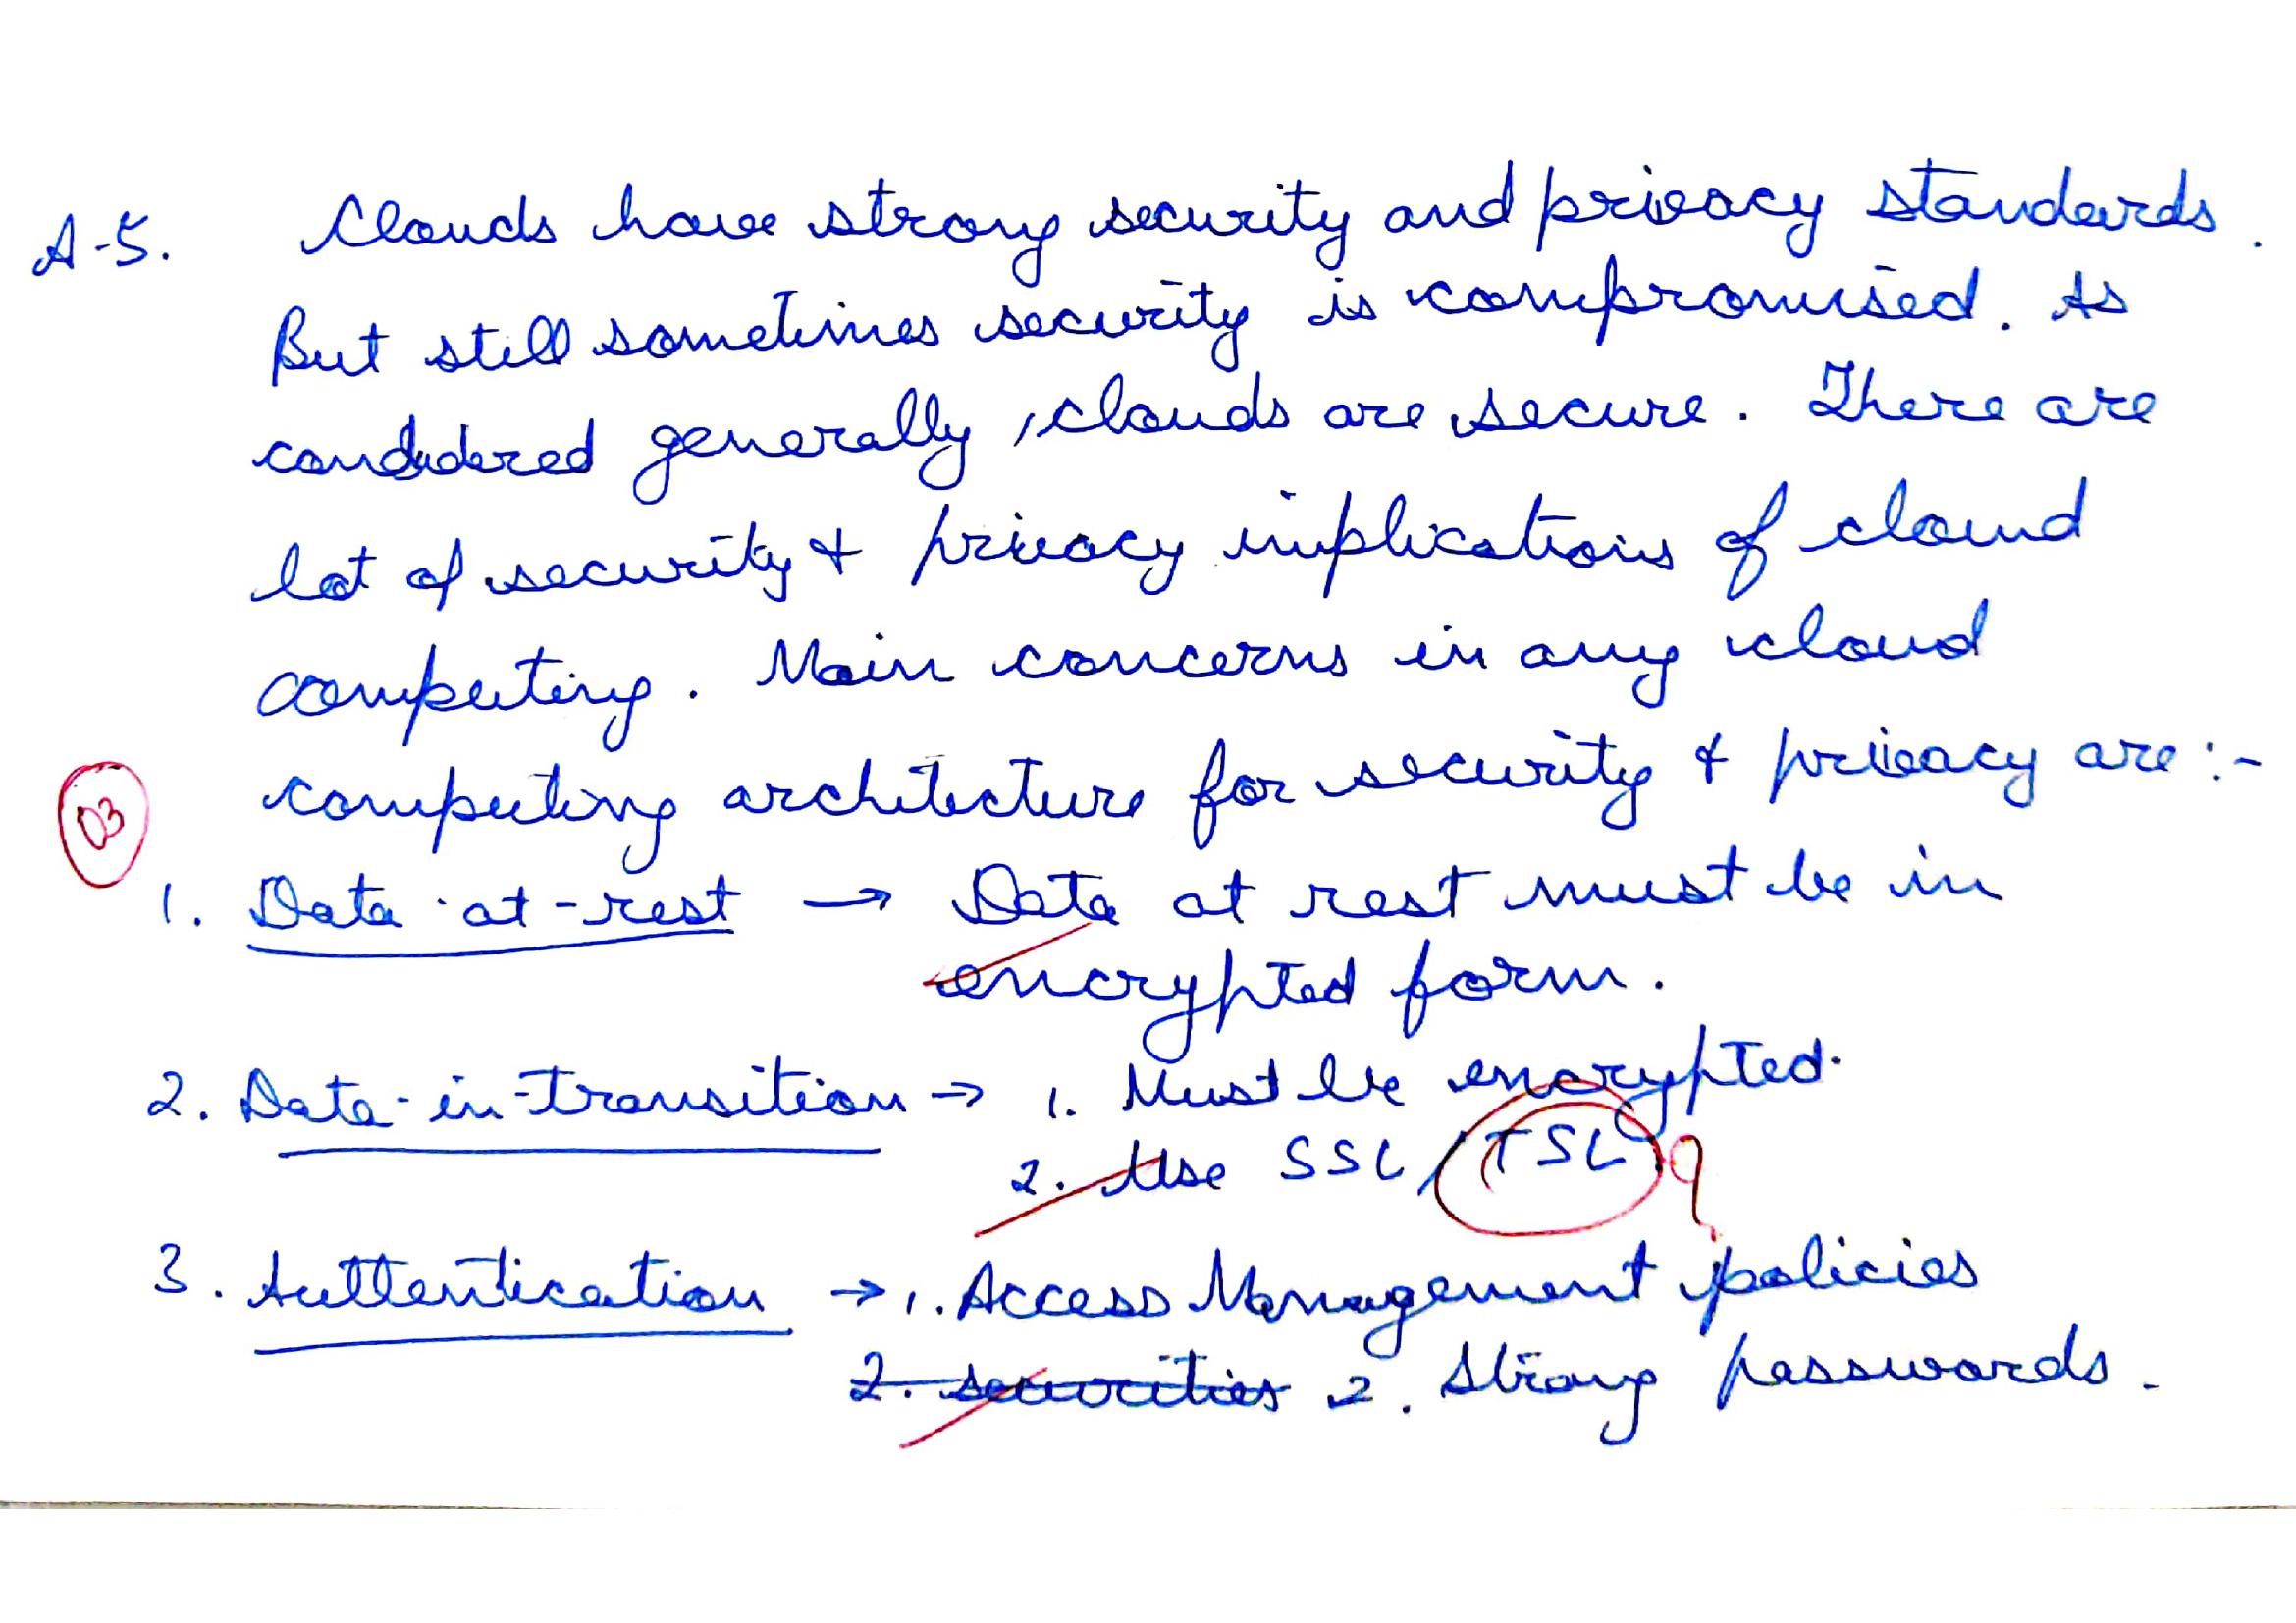 A-5. Clouds have strong security and privacy standards.
But still sometimes security is compromised. As
considered generally, clouds are secure. There are
lot of security & privacy implications of cloud
computing. Main concerns in any cloud
computing architecture for security & privacy are :-
03
1. Data-at-rest → Data at rest must be in
encrypted form.
2. Data-in-transition → 1. Must be encrypted.
2. Use SSL/TSL ?
3. Auttentication → 1. Access Management policies
2. securities 2. Strong passwords.